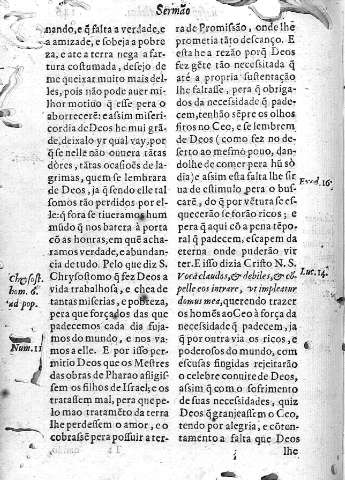 Sermão
nando, e q̃ falta a verdade, e
a amizade, e sobeja a pobre
za, e ate a terra nega a far-
tura costumada, desejo de
me queixar muito mais del-
les, pois não pode auer mi-
lhor motiuo q̃ esse pera o
aborrecerẽ: e assim miseri-
cordia de Deos he mui grã
de, deixalo yr qual vay, por
q̃ se nelle não ouuera tãtas
dôres, tãtas ocasioẽs de la-
grimas, quem se lembrara
de Deos, ja q̃ sendo elle tal
somos tão perdidos por el-
le: q̃ fora se tiueramos hum
mũdo q̃ nos batera à porta
cõ as honras, em quẽ acha-
ramos verdade, e abundan-
cia de tudo. Pelo que diz S.
Chrysostomo q̃ fez Deos a
vida trabalhosa, e chea de
tantas miserias, e pobreza,
pera que forçados das que
padecemos cada dia fuja-
mos do mundo, e nos va-
mos a elle. E por isso per-
mitio Deos que os Mestres
das obras de Pharao afligis-
sem os filhos de Israel; e os
tratassem mal, pera que pe-
lo mao tratamẽto da terra
lhe perdessem o amor, e o
cobrassẽ pera possuir a ter-
Chrysost.
hom. 6.
ad pop.
Num. 11
ra de Promissão, onde lhe
prometia tãto descanço. E
esta he a rezão porq̃ Deos
fez gẽte tão necessitada q̃
até a propria sustentação
lhe faltasse, pera q̃ obriga-
dos da necessidade q̃ pade-
cem, tenhão sẽpre os olhos
fitos no Ceo, e se lembrem
de Deos (como fez no de-
serto ao mesmo pouo, dan-
dolhe de comer pera hũ sò
dia) e assim esta falta lhe sir
ua de estimulo pera o bus-
carẽ, do que por vẽtura se es-
quecerão se forão ricos; e
pera q̃ aqui cõ a pena tẽpo-
ral q̃ padecem, escapem da
eterna onde puderão vir
ter. E isso dizia Cristo N. S.
Voca claudos, & debiles, & cõ-
pelle eos intrare, vt impleatur
domus mea, querendo trazer
os homẽs ao Ceo à força da
necessidade q̃ padecem, ja
q̃ por outra via os ricos, e
poderosos do mundo, com
escusas fingidas rejeitarão
o celebre conuite de Deos,
assim q̃ com o sofrimento
de suas necessidades, quiz
Deos q̃ granjeassem o Ceo,
tendo por alegria, e cõten-
tamento a falta que Deos
lhe
Exod. 16.
Luc. 14.